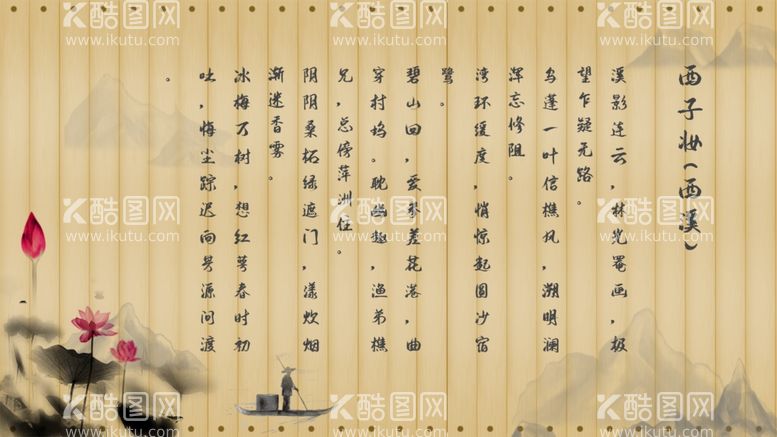 西子妆(西溪)
溪影连云，林光罨画，极
望乍疑无路。
乌篷一叶信樵风，溯明澜
浑忘修阻。
湾环缓度，悄惊起圆沙宿
鹭。
碧山回，爱参差花港，曲
穿村坞。耽幽趣，渔弟樵
兄，总傍萍洲住。
阴阴桑柘绿遮门，漾炊烟
渐迷香雾。
冰梅万树，想红萼春时初
吐，悔尘踪迟向旻源问渡
。
酷图网
www.ikutu.com
酷图网
www.ikutu.com
酷图网
www.ikutu.com
酷图网
www.ikutu.com
酷图网
www.ikutu.com
酷图网
www.ikutu.com
酷图网
www.ikutu.com
酷图网
www.ikutu.com
酷图网
www.ikutu.com